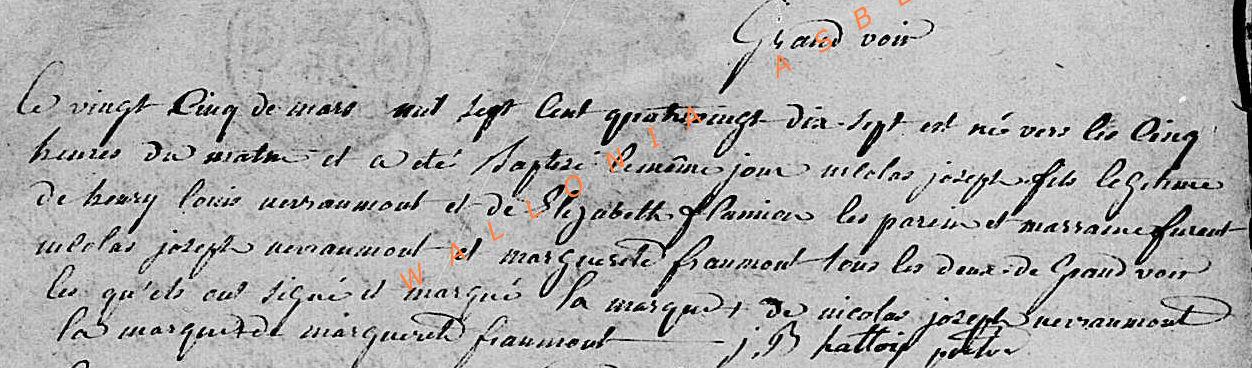 Grand voir
le vingt Cinq de mars mil sept Cent quatrevingt dix-sept est née vers les Cinq
heures du matin et a eté baptisé le même jour nicolas joseph fils legetime
de henry louis nevraumont et de Elizabeth flamion les parein et marraine furent
nicolas joseph nevraumont et marguerete fraumont tous les deux de Grand voir
les qu'els ont signé et marqué la marque + de nicolas joseph nevraumont
la marque + de marguerete fraumont j B hattoir
WALLONIA ASBL